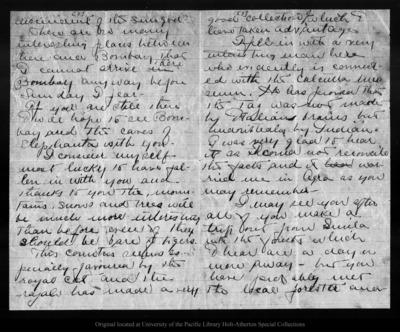 monument of the sungod.
There are so many
interesting places between
here and Bombay that
I cannot arrive in there
Bombay anyway before
Sunday I fear.
If you are still there
I do hope to see Bom-
bay and the caves of
Elephanta with you.
I consider myself
most lucky to have fal-
len in with you and
thanks to you the moun-
tains, snows and trees will
be much more interesting
than before even if they
should be bare of tigers.
This country seems es-
pecially favoured by the
royal cat and the
rajah has made a very
good collection of which I
have taken advantage.
I fell in with a very
interesting man here
who evidently is connect-
ed with the Calcutta Mu-
seum. He has proven that
the Taj was not made
by Italians brains but
undoubtedly by Indians.
I was very glad to hear
it as I could not reconcile
the facts and it wor-
ried me in Agra as you
may remember.
I may see you after
all if you make a
trip out from Simla
into the forests which
I hear are a day or
more away — but you
have probably met
the local forester and
Original located at University of the Pacific Library Holt-Atherton Special Collections